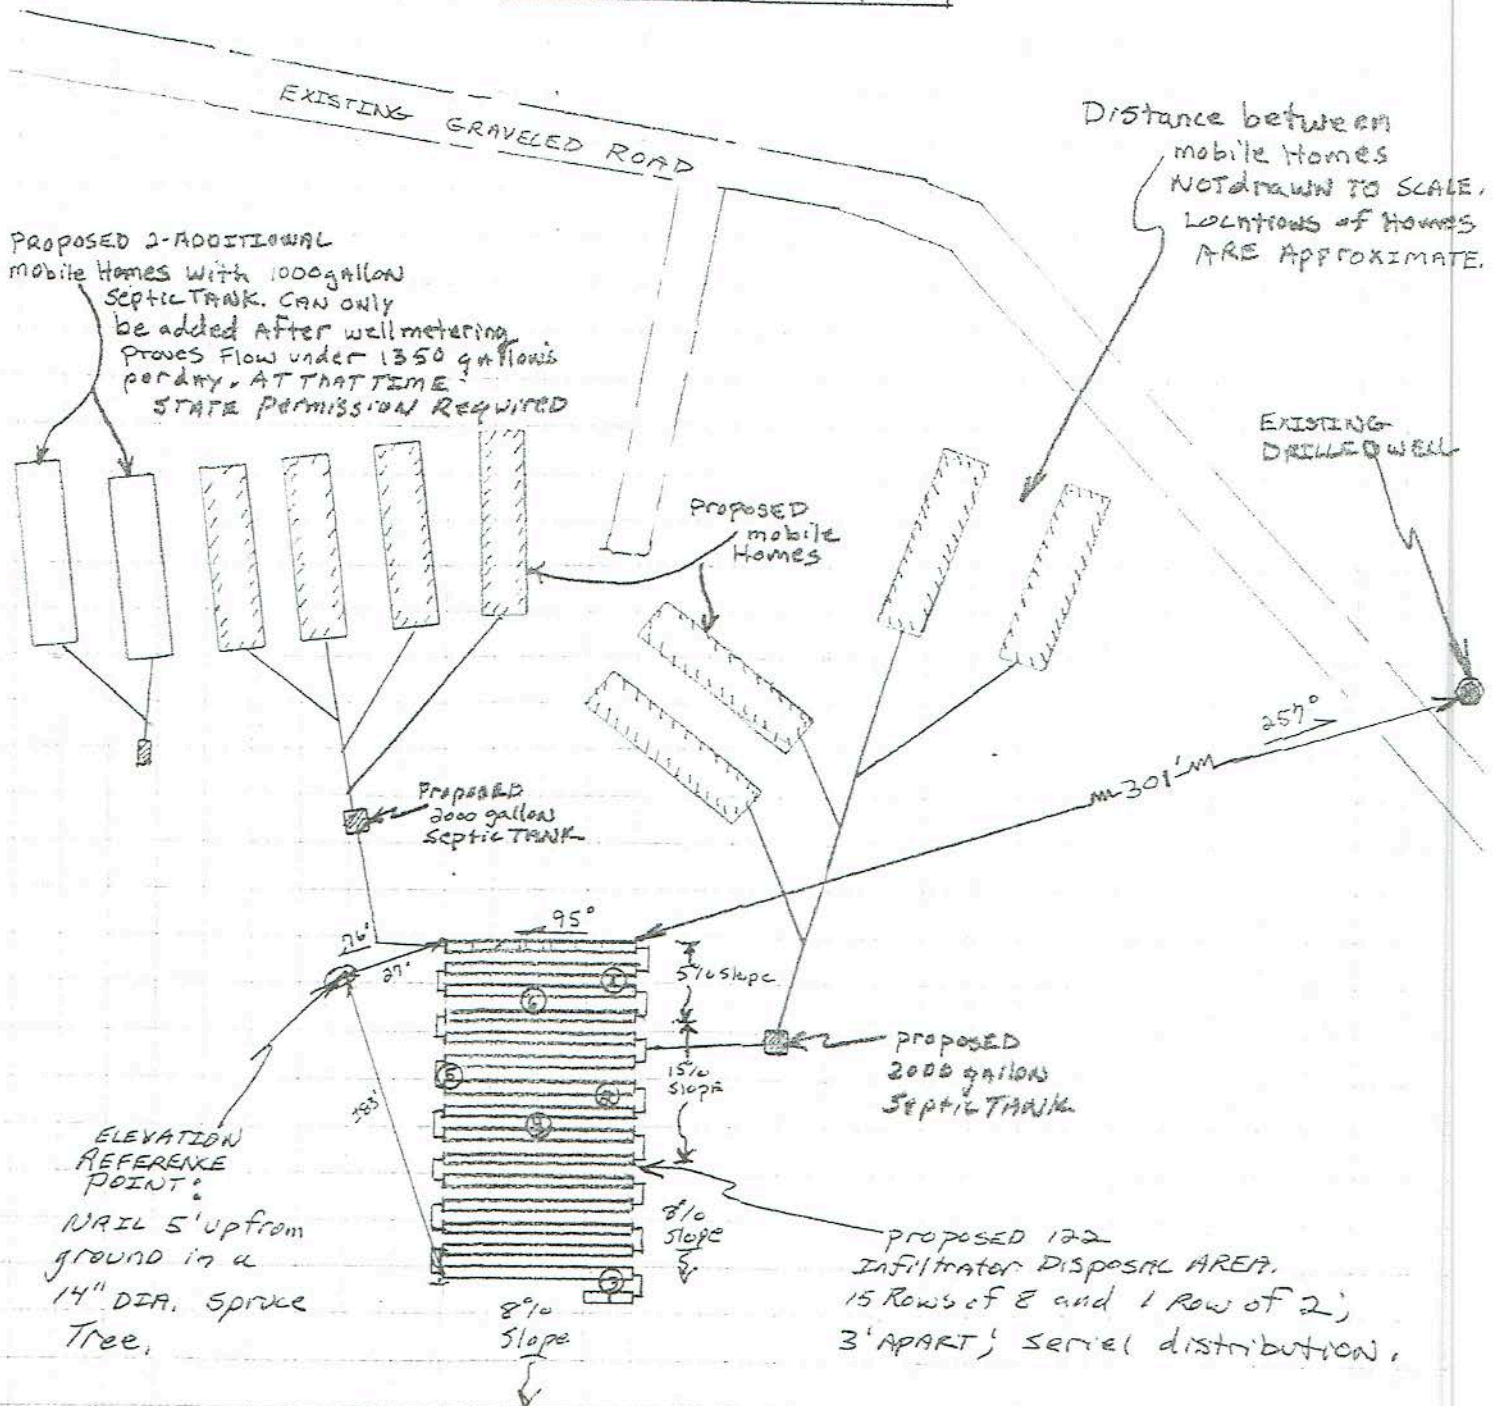 EXISTING GRAVELED ROAD
Distance between
mobile Homes
NOT drawn TO SCALE.
Locations of Homes
ARE Approximate.
PROPOSED 2-ADDITIONAL
mobile Homes with 1000 gallon
Septic TANK. CAN only
be added After well metering
proves Flow under 1350 gallons
per day. AT THAT TIME
STATE Permission Required
EXISTING
DRILLED WELL
Proposed
mobile
Homes
257°
301'
Proposed
2000 gallon
Septic TANK
95°
76°
27'
5% Slope
15%
Slope
83'
1
6
5
2
proposed
2000 gallon
Septic TANK
ELEVATION
REFERENCE
POINT:
NAIL 5' up from
ground in a
14" DIA. Spruce
Tree.
8%
Slope
3
8%
Slope
proposed 122
Infiltrator Disposal AREA.
15 Rows of 8 and 1 Row of 2;
3' APART; seriel distribution.